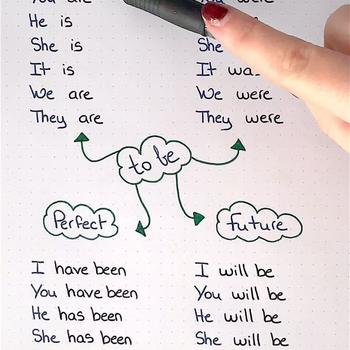 You are
He is
She is
It is
We are
They are
You were
She
It was
We were
They were
to be
Perfect
I have been
You have been
He has been
She has been
future
I will be
You will be
He will be
She will be